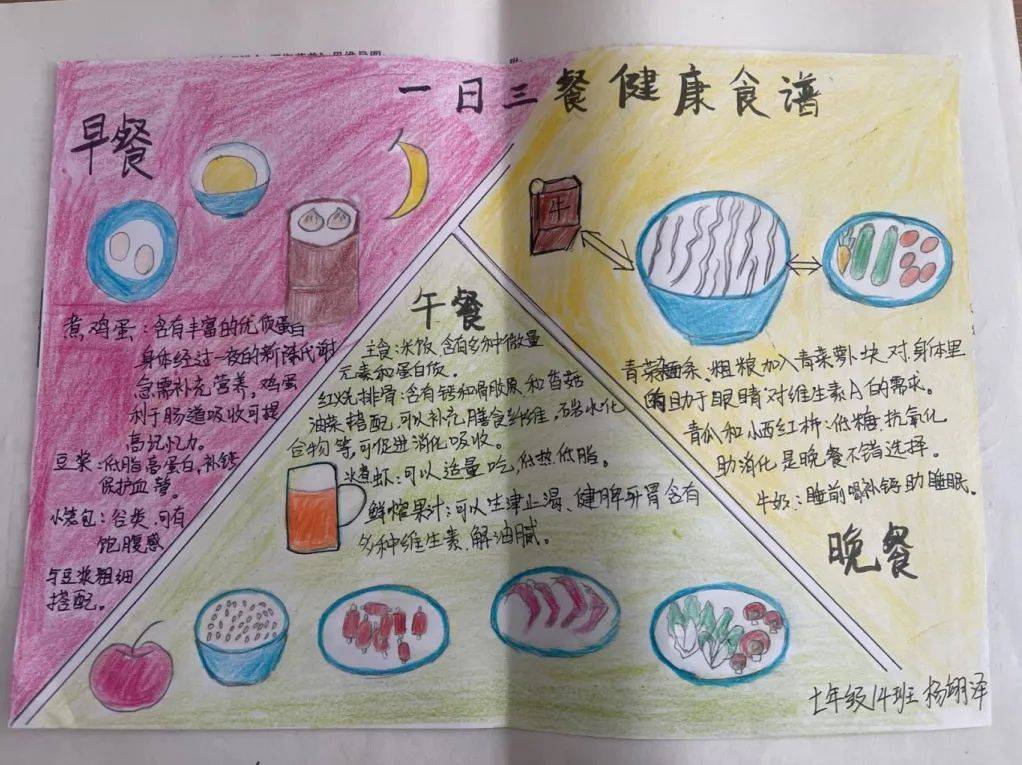 一日三餐健康食谱
早餐
煮鸡蛋：含有丰富的优质蛋白
身体经过一夜的新陈代谢
急需补充营养，鸡蛋
利于肠道吸收可提
高记忆力。
豆浆：低脂高蛋白，补钙
保护血管。
小笼包：谷类，可有
饱腹感
与豆浆粗细
搭配。
午餐
主食：米饭 含有多种微量
元素和蛋白质。
红烧排骨：含有钙和骨胶原，和香菇
油菜搭配，可以补充膳食纤维，碳水化
合物等，可促进消化吸收。
水煮虾：可以适量吃，低热低脂。
鲜榨果汁：可以生津止渴、健脾开胃含有
多种维生素，解油腻。
牛
青菜面条、粗粮加入青菜萝卜块，对身体里
助于眼睛对维生素A的需求。
青瓜和小西红柿：低糖，抗氧化
助消化是晚餐不错选择。
牛奶：睡前喝补钙助睡眠。
晚餐
七年级14班 杨翊泽